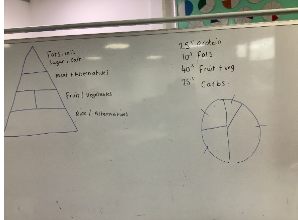 Fats, oils
Sugar, Salt
Meat + Alternatives
Fruit / Vegetables
Rice / Alternatives
25% protein
10% Fats
40% Fruit + veg
25% Carbs